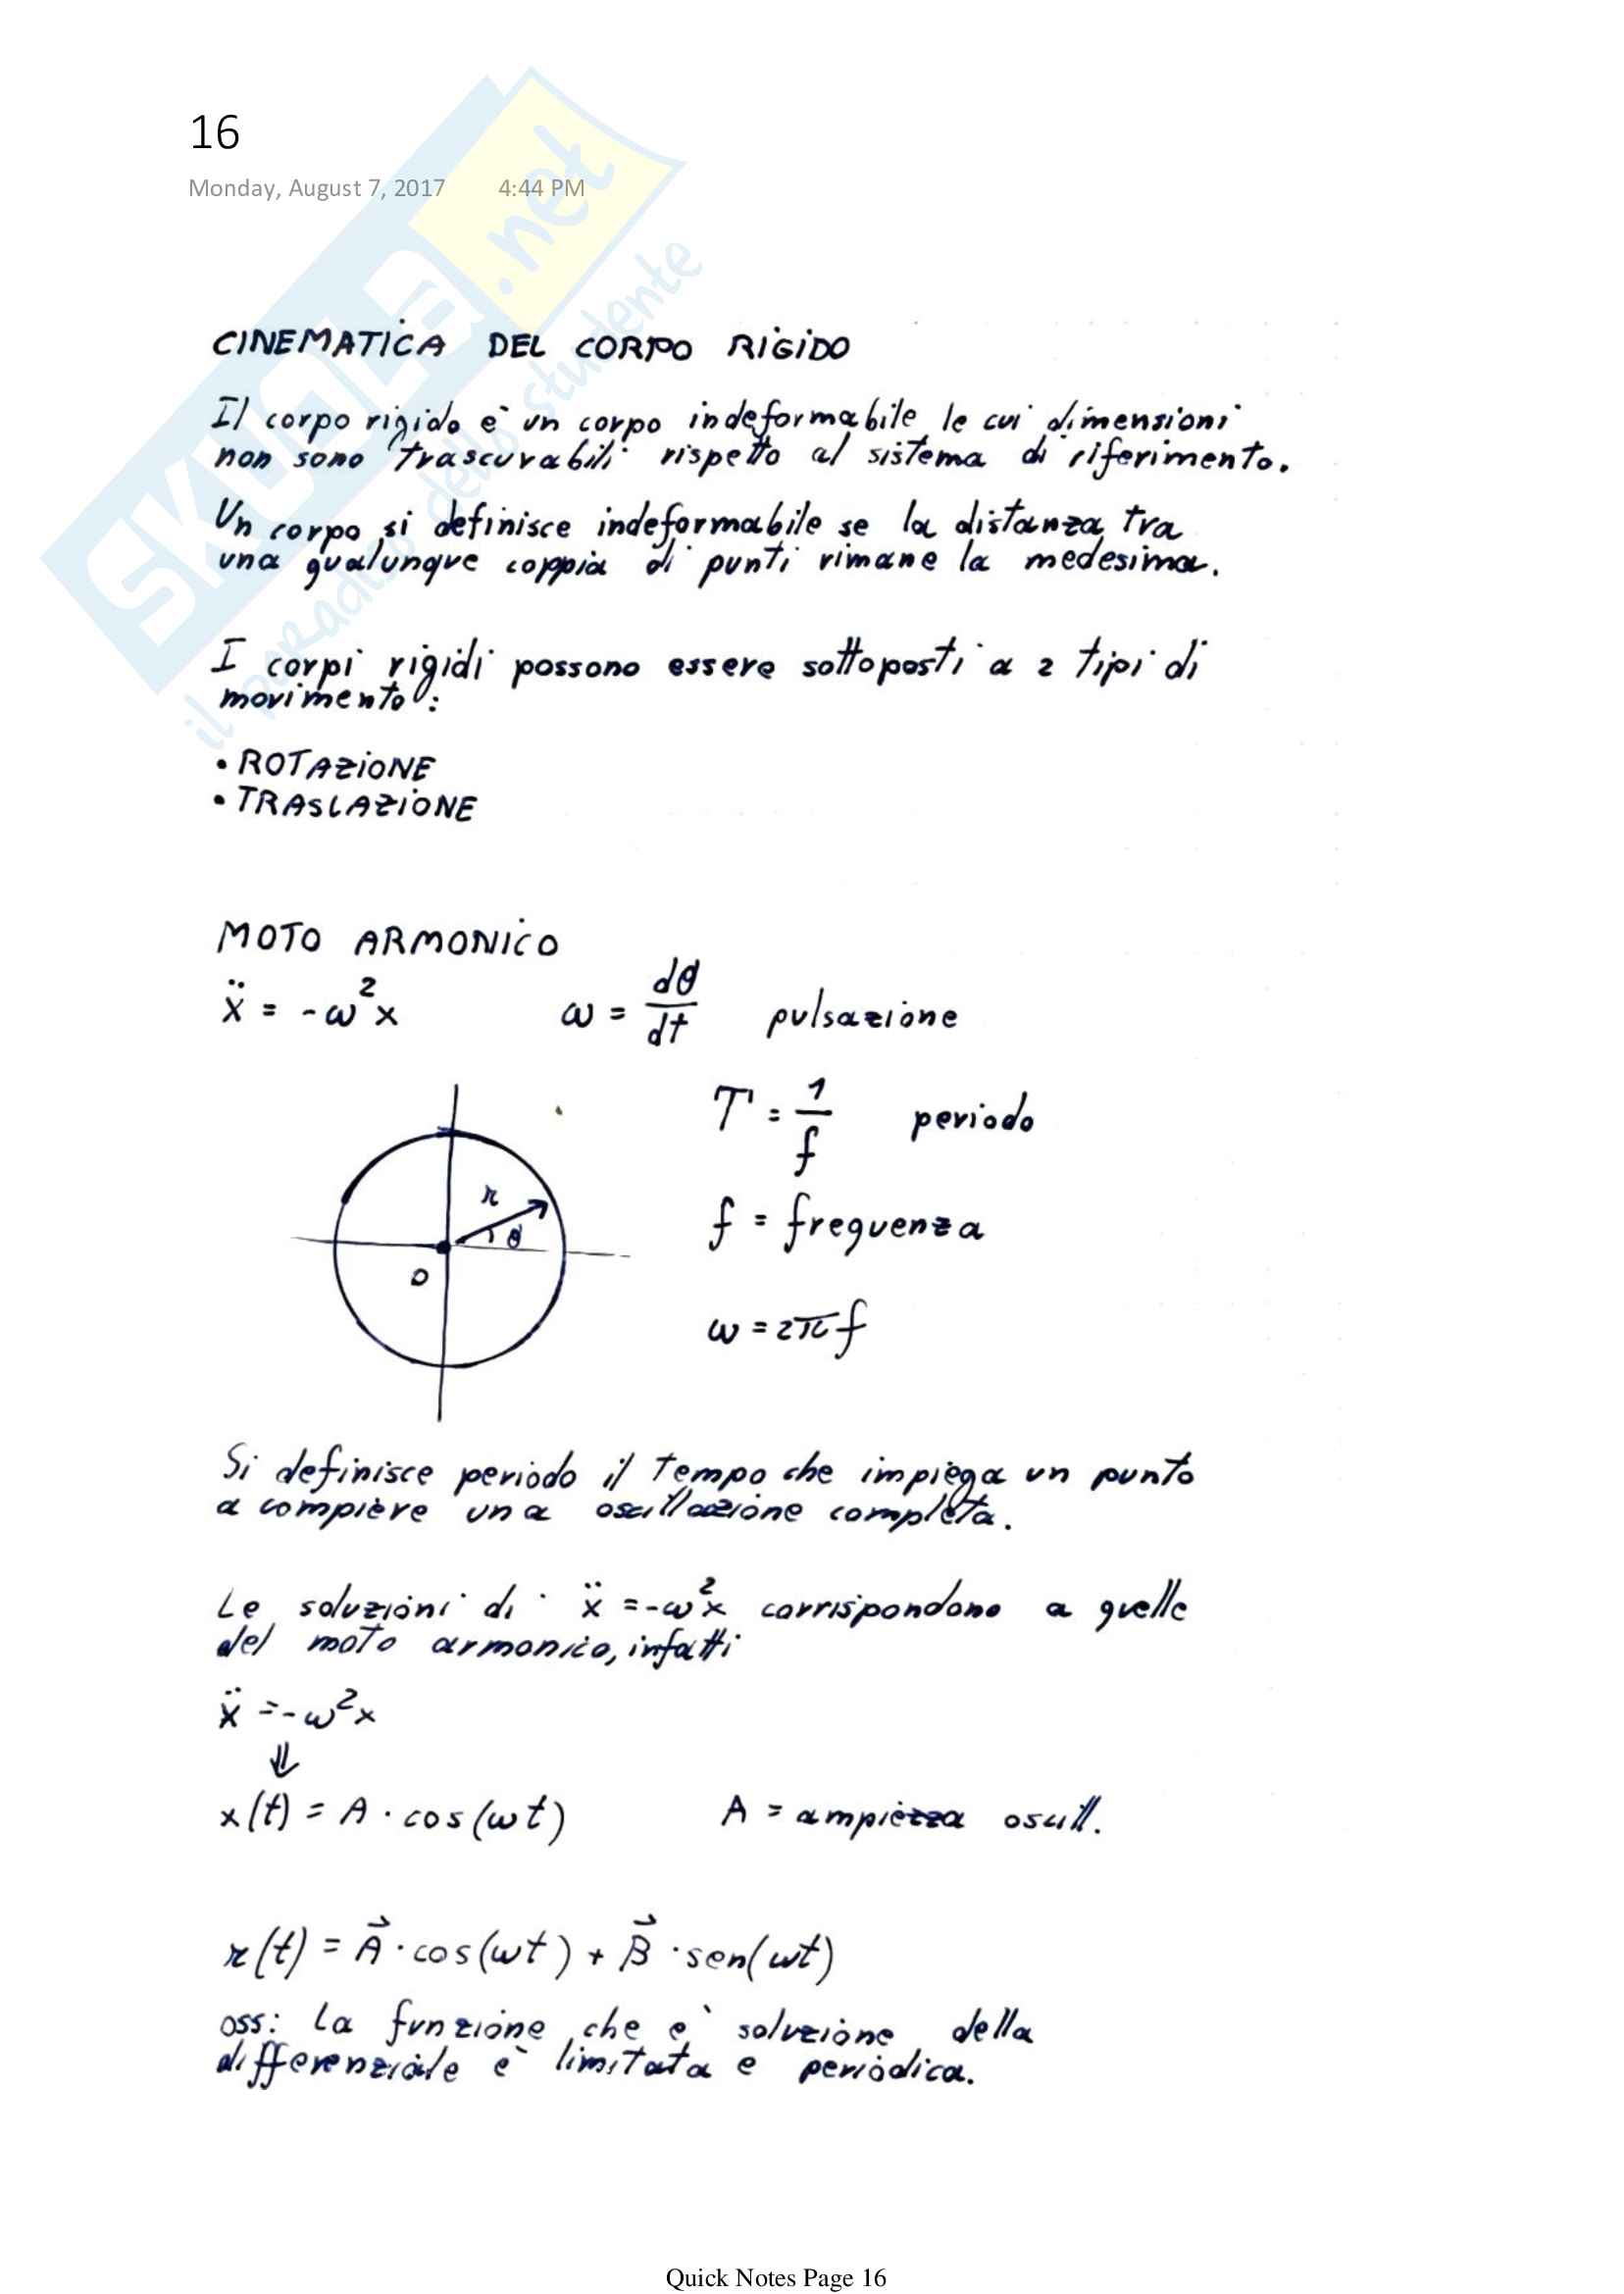 16
Monday, August 7, 2017 4:44 PM
SKUOLA.net
il paradiso dello studente
CINEMATICA DEL CORPO RIGIDO
Il corpo rigido è un corpo indeformabile le cui dimensioni
non sono trascurabili rispetto al sistema di riferimento.
Un corpo si definisce indeformabile se la distanza tra
una qualunque coppia di punti rimane la medesima.
I corpi rigidi possono essere sottoposti a 2 tipi di
movimento:
• ROTAZIONE
• TRASLAZIONE
MOTO ARMONICO
ẍ = -ω²x ω = dθ/dt pulsazione
T = 1/f periodo
r θ
O
f = frequenza
ω = 2πf
Si definisce periodo il tempo che impiega un punto
a compiere una oscillazione completa.
Le soluzioni di ẍ = -ω²x corrispondono a quelle
del moto armonico, infatti
ẍ = -ω²x
⇓
x(t) = A · cos(ωt) A = ampiezza oscill.
r(t) = A⃗ · cos(ωt) + B⃗ · sen(ωt)
oss: la funzione che è soluzione della
differenziale è limitata e periodica.
Quick Notes Page 16